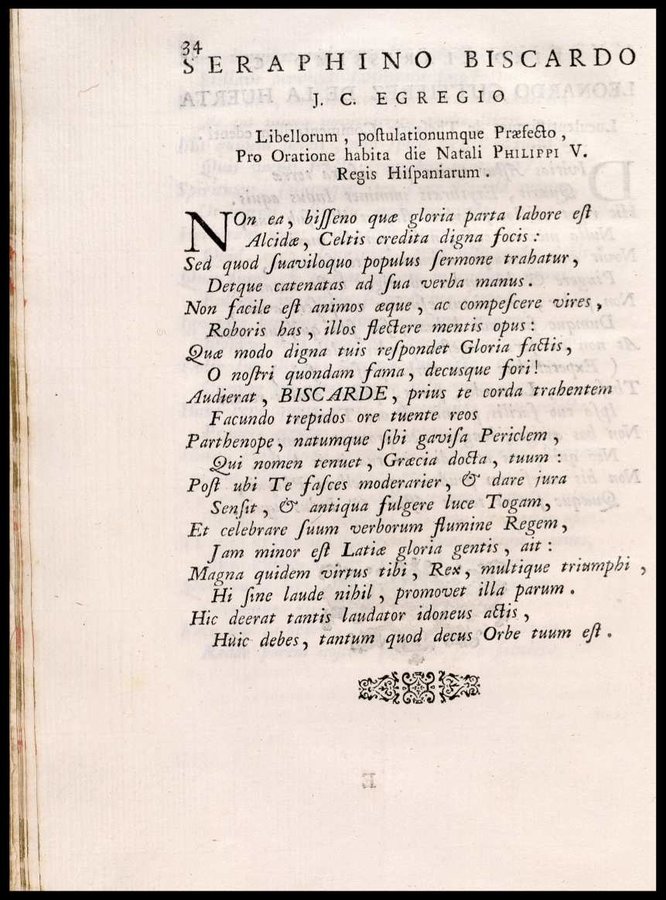 34
SERAPHINO BISCARDO
J. C. EGREGIO
Libellorum, poſtulationumque Præfecto,
Pro Oratione habita die Natali PHILIPPI V.
Regis Hiſpaniarum.
NOn ea, biſſeno quæ gloria parta labore eſt
Alcidæ, Celtis credita digna focis:
Sed quod ſuaviloquo populus ſermone trahatur,
Detque catenatas ad ſua verba manus.
Non facile eſt animos æque, ac compeſcere vires,
Roboris has, illos flectere mentis opus:
Quæ modo digna tuis reſpondet Gloria factis,
O noſtri quondam fama, decusque fori!
Audierat, BISCARDE, prius te corda trahentem
Facundo trepidos ore tuente reos
Parthenope, natumque ſibi gaviſa Periclem,
Qui nomen tenuet, Græcia docta, tuum:
Poſt ubi Te faſces moderarier, & dare jura
Senſit, & antiqua fulgere luce Togam,
Et celebrare ſuum verborum flumine Regem,
Jam minor eſt Latiæ gloria gentis, ait:
Magna quidem virtus tibi, Rex, multique triumphi,
Hi ſine laude nihil, promovet illa parum.
Hic deerat tantis laudator idoneus actis,
Huic debes, tantum quod decus Orbe tuum eſt.